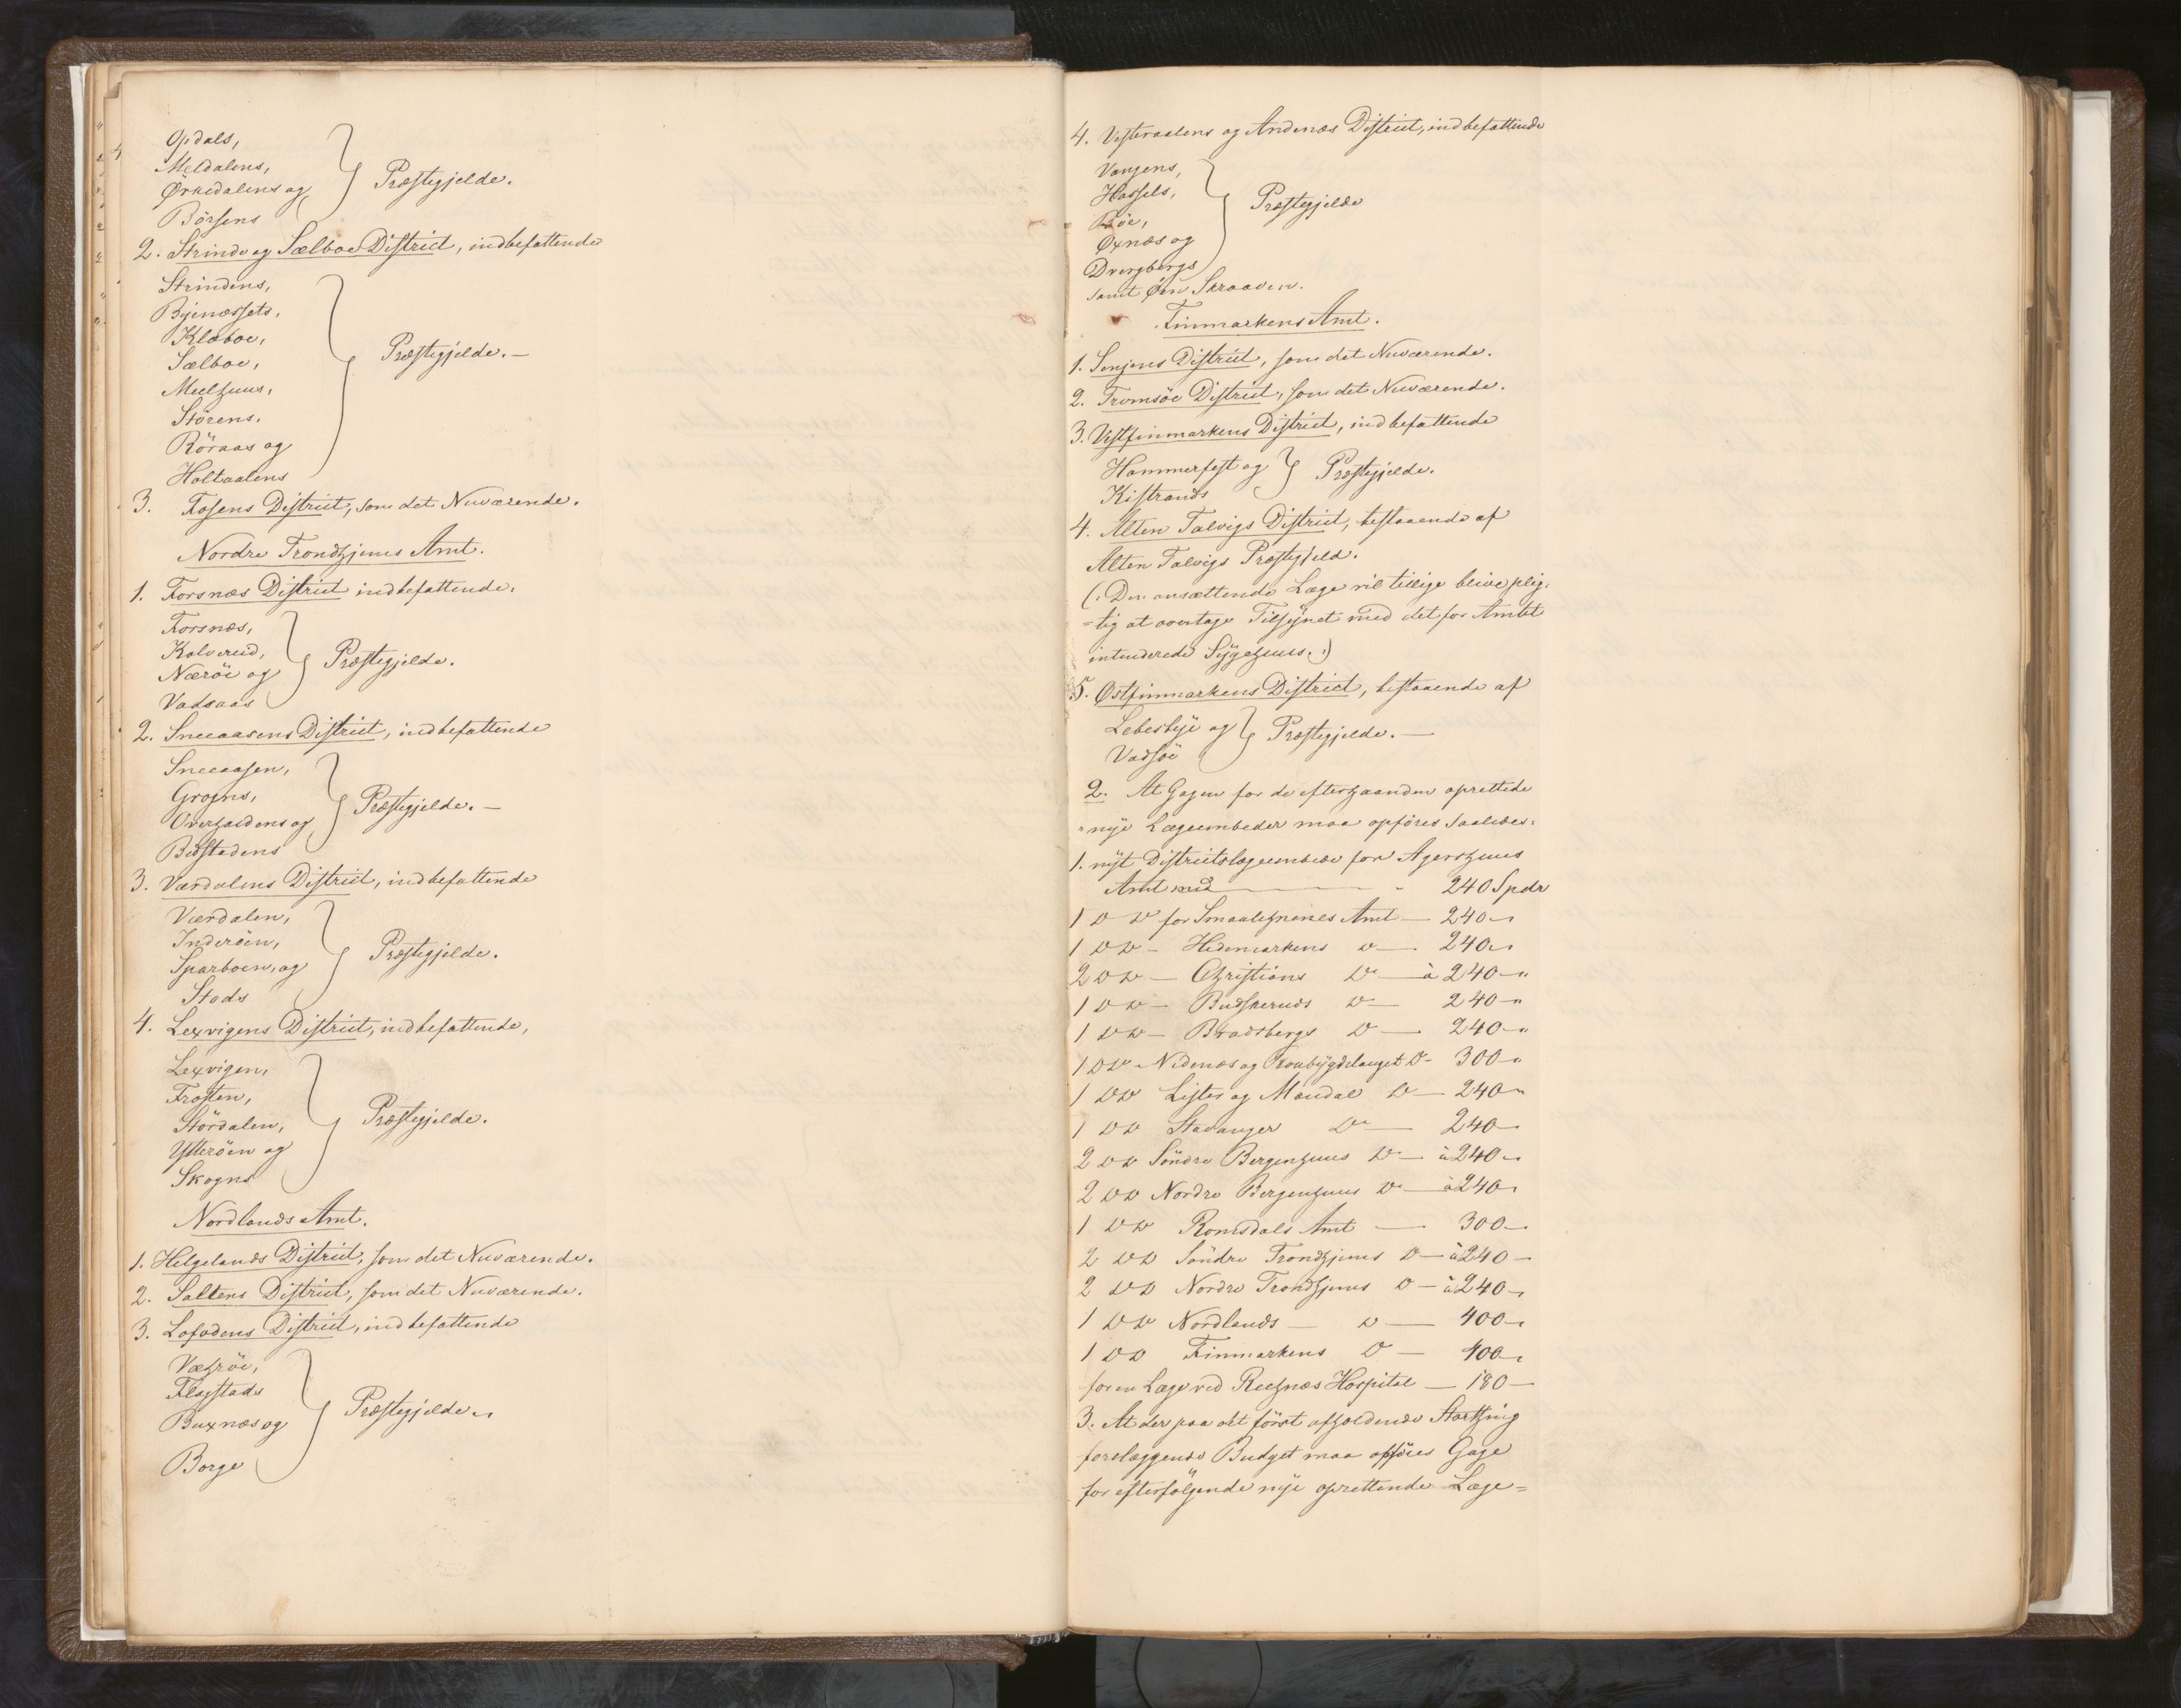 Opdals,
Meldalens,
Ørkedalens og
Börsens
Præstegjelde.
2. Strinde og Sælboe District, indbefattende
Strindens,
Byenæssets,
Klæboe,
Sælboe,
Meelhuus,
Störens,
Röraas og
Holtaalens
Præstegjelde. —
3. Fosens District, som det Nuværende.
Nordre Trondhjems Amt.
1. Forsnæs District indbefattende,
Forsnæs,
Kolvereid,
Næröe og
Vadsaas
Præstegjelde.
2. Sneeaasens District, indbefattende
Sneeaasen,
Grogns,
Overhaldens og
Bedstadens
Præstegjelde. —
3. Værdalens District, indbefattende
Værdalen,
Inderöen,
Sparboen, og
Stods
Præstegjelde.
4. Lexvigens District, indbefattende,
Lexvigen,
Frosten,
Stördalen,
Ytteröen og
Skogns
Præstegjelde.
Nordlands Amt.
1. Helgelands District, som det Nuværende.
2. Saltens District, som det Nuværende.
3. Lofodens District, indbefattende
Væhröe,
Flagstads
Buxnæs og
Borge
Præstegjelde
4. Vesteraalens og Andenæs District, indbefattende
Vangens,
Hassels,
Böe,
Øxnæs og
Dvergbergs
Præstegjelde
samt Øen Skraaven.
Finmarkens Amt.
1. Senjens District, som det Nuværende.
2. Tromsöe District, som det Nuværende.
3. Vestfinmarkens District, indbefattende
Hammerfest og
Kistrands
Præstegjelde.
4. Alten Talvigs District, bestaaende af
Alten Talvigs Præstegjeld.
(: Den ansættende Læge vil tillige blive plig-
=tig at overtage Tilsynet med det for Amtet
intenderede Sygehuus. :)
5. Østfinmarkens District, bestaaende af
Lebesbye og
Vadsöe
Præstegjelde. —
2. At Gagen for de efterhaanden oprettede
nye Lægeembeder maa opföres saaledes:
1. nyt Districtslægeembede for Agershuus
Amt med — 240 Spdr
1 D D for Smaalehnenes Amt — 240 —
1 D D — Hedemarkens D — 240 —
2 D D — Christians D — à 240 —
1 D D — Budskeruds D — 240 —
1 D D — Bradsbergs D — 240 —
1 D D — Nedenæs og Raabygdelauget D — 300 —
1 D D Lister og Mandal D — 240 —
1 D D Stavanger D — 240 —
2 D D Söndre Bergenhuus D — à 240 —
2 D D Nordre Bergenhuus D — à 240 —
1 D D Romsdals Amt — 300 —
2 D D Söndre Trondhjems D — à 240 —
2 D D Nordre Trondhjems D — à 240 —
1 D D Nordlands — D — 400 —
1 D D Finmarkens D — 400 —
for en Læge ved Reehnæs Hospital — 180 —
3. At der paa det först afholdende Storthing
forelæggende Budget maa opföres Gage
for efterfölgende nye oprettende Læge=